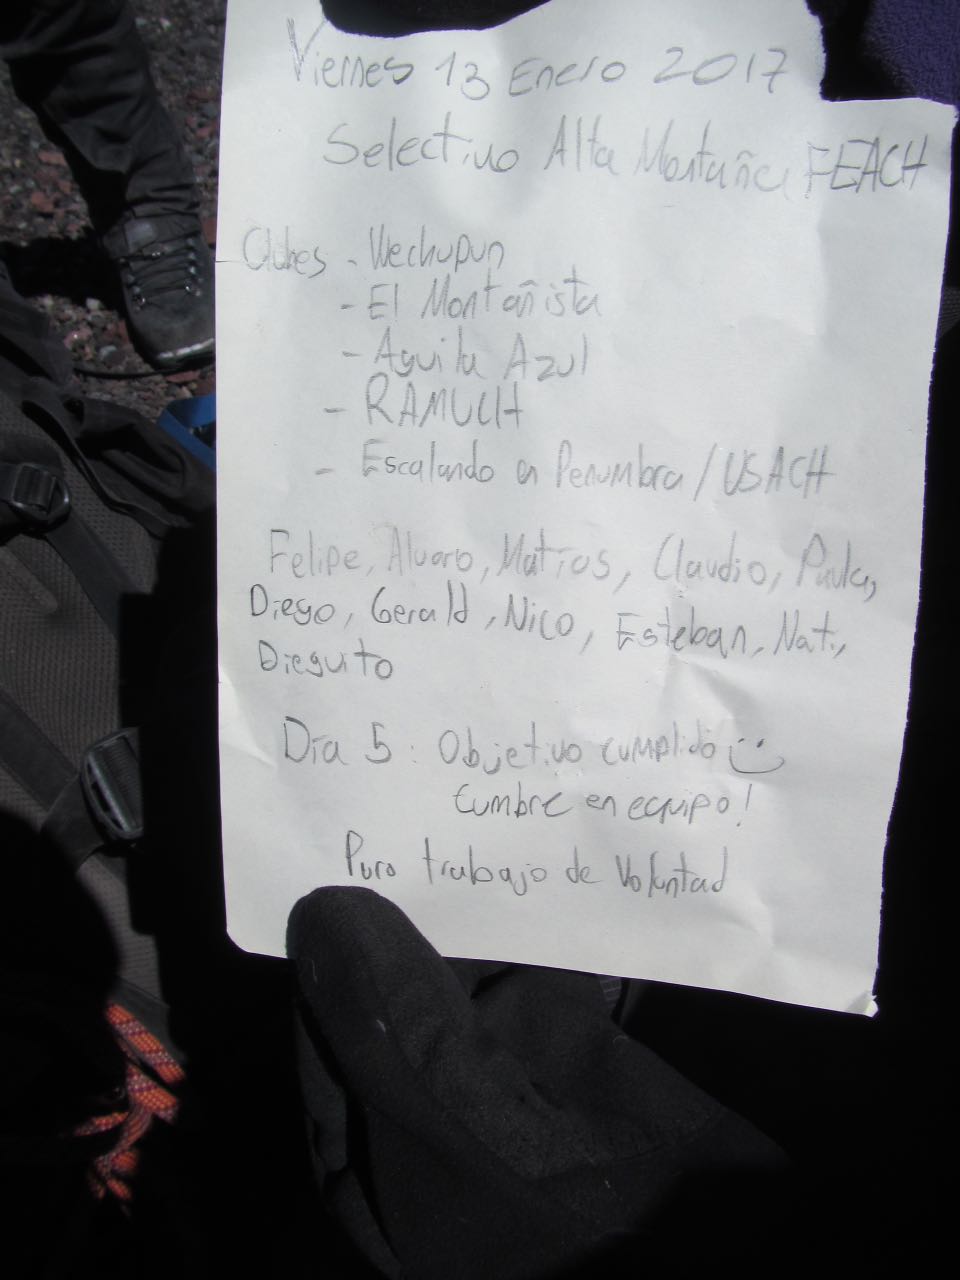 Viernes 13 Enero 2017
Selectivo Alta Montaña FEACH
Clubes - Wechupun
- El Montañista
- Aguila Azul
- RAMUCH
- Escalando en Penumbra / USACH
Felipe, Alvaro, Matias, Claudio, Paula,
Diego, Gerald, Nico, Esteban, Nati,
Dieguito
Día 5: Objetivo cumplido :)
Cumbre en equipo!
Puro trabajo de Voluntad